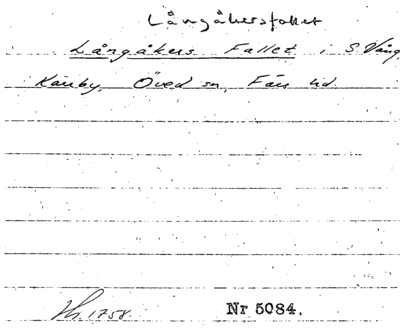 Långåkersfallet
Långåkers Fallet i S. Vång
Käuby. Öved sn, Färs hd.
Nr 5084.
1758.